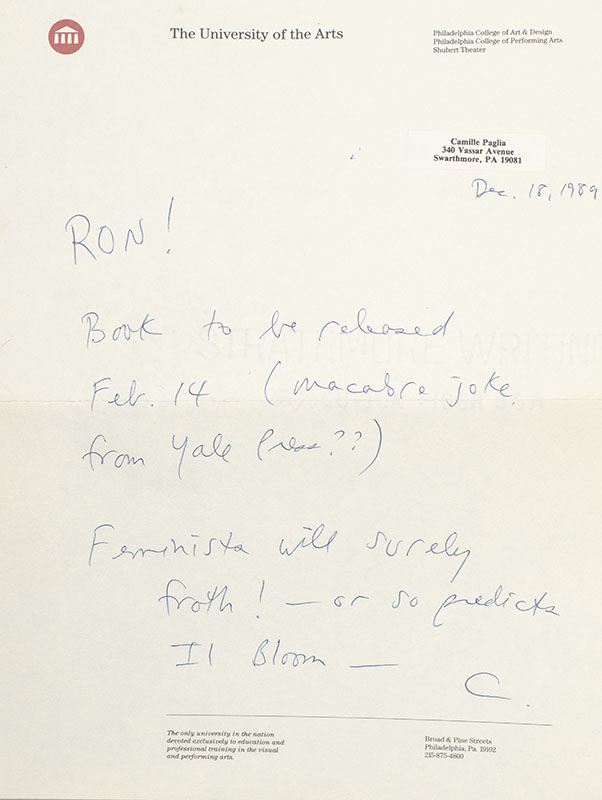 The University of the Arts
Philadelphia College of Art & Design
Philadelphia College of Performing Arts
Shubert Theater
Camille Paglia
340 Vassar Avenue
Swarthmore, PA 19081
Dec. 18, 1989
RON!
Book to be released
Feb. 14 (macabre joke
from Yale Press??)
Feminists will surely
froth! — or so predicts
Il Bloom —
C.
STRATHMORE WRITING
The only university in the nation
devoted exclusively to education and
professional training in the visual
and performing arts.
Broad & Pine Streets
Philadelphia, Pa. 19102
215-875-4800